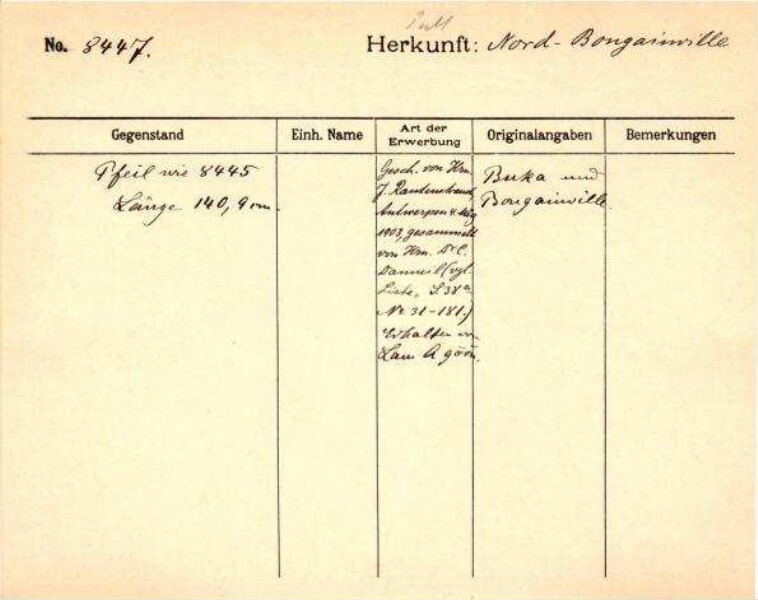 No. 8447.
Herkunft: Nord-Bougainville
Gegenstand
Einh. Name
Art der Erwerbung
Originalangaben
Bemerkungen
Pfeil wie 8445
Länge 140,9 cm.
Gesch. von Hrn.
J. Rautenstrauch,
Antwerpen 4. Aug
1903, gesammelt
von Hrn. Dr. C.
Danneil (vgl.
Liste, S. 38a
No 31-181.)
Erhalten von
Lam A göön.
Buka und
Bougainville.